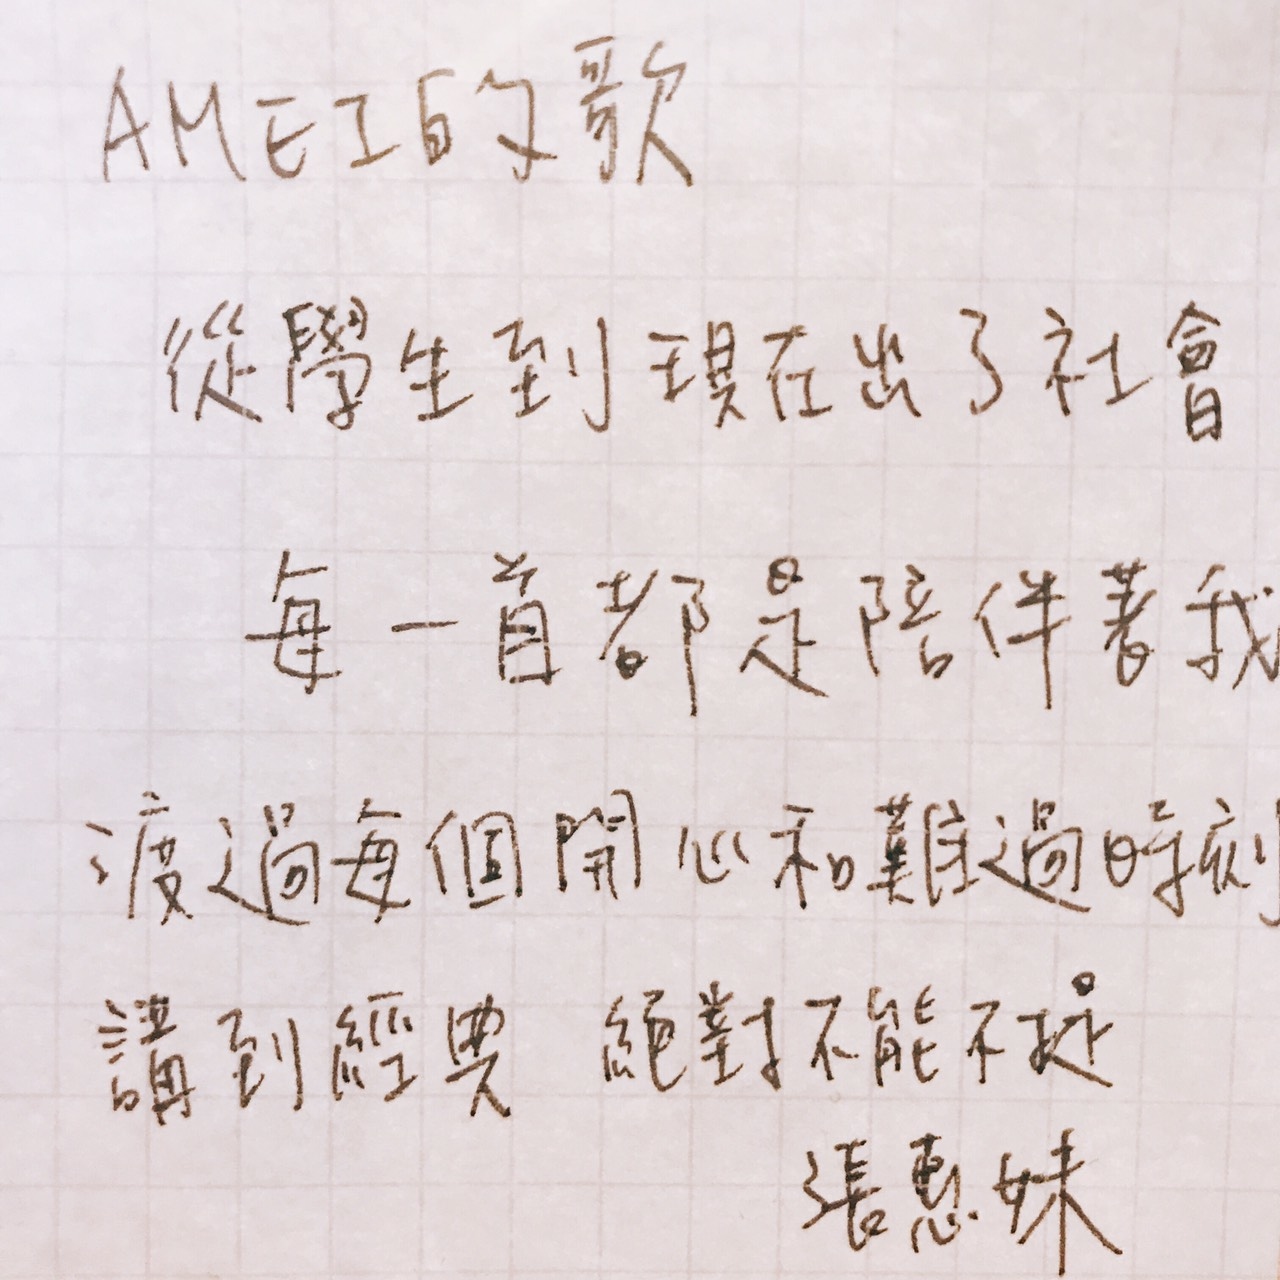 AMEI的歌
從學生到現在出了社會
每一首都是陪伴著我
渡過每個開心和難過時刻
講到經典 絕對不能不提
張惠妹